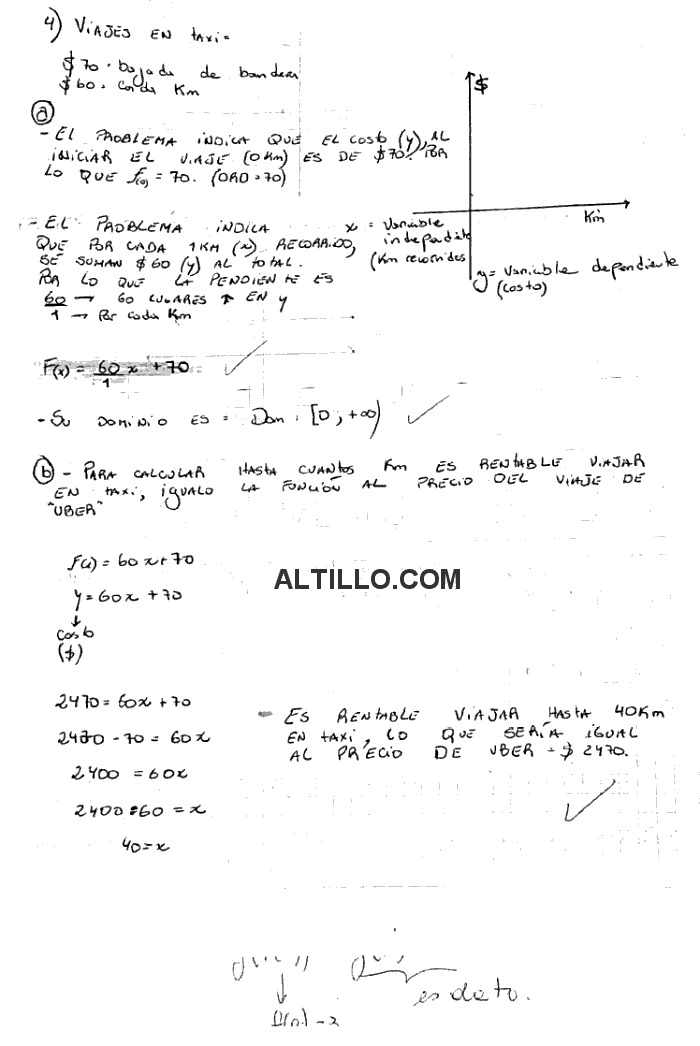 4) VIAJES EN taxi.
$70. bajada de bandera
$60. cada Km
$
Km
x = Variable
independiente
(Km recorridos
y = Variable dependiente
(costo)
a
- EL PROBLEMA INDICA QUE EL COSTO (y), AL
INICIAR EL VIAJE (0 Km) ES DE $70. POR
LO QUE f(0) = 70. (ORD = 70)
- EL PROBLEMA INDICA
QUE POR CADA 1 KM (x) RECORRIDO,
SE SUMAN $60 (y) AL TOTAL.
POR LO QUE LA PENDIENTE ES
60 → 60 LUGARES ↑ EN y
1 → Por cada Km
F(x) = 60/1 x + 70
- SU DOMINIO ES = Dom: [0; +∞)
b - PARA CALCULAR HASTA CUANTOS Km ES RENTABLE VIAJAR
EN taxi, IGUALO LA FUNCIÓN AL PRECIO DEL VIAJE DE
"UBER"
f(x) = 60x + 70
y = 60x + 70
↓
costo
($)
ALTILLO.COM
2470 = 60x + 70
2470 - 70 = 60x
2400 = 60x
2400 : 60 = x
40 = x
- ES RENTABLE VIAJAR HASTA 40Km
EN taxi, LO QUE SERÍA IGUAL
AL PRECIO DE UBER - $2470.
es dato.